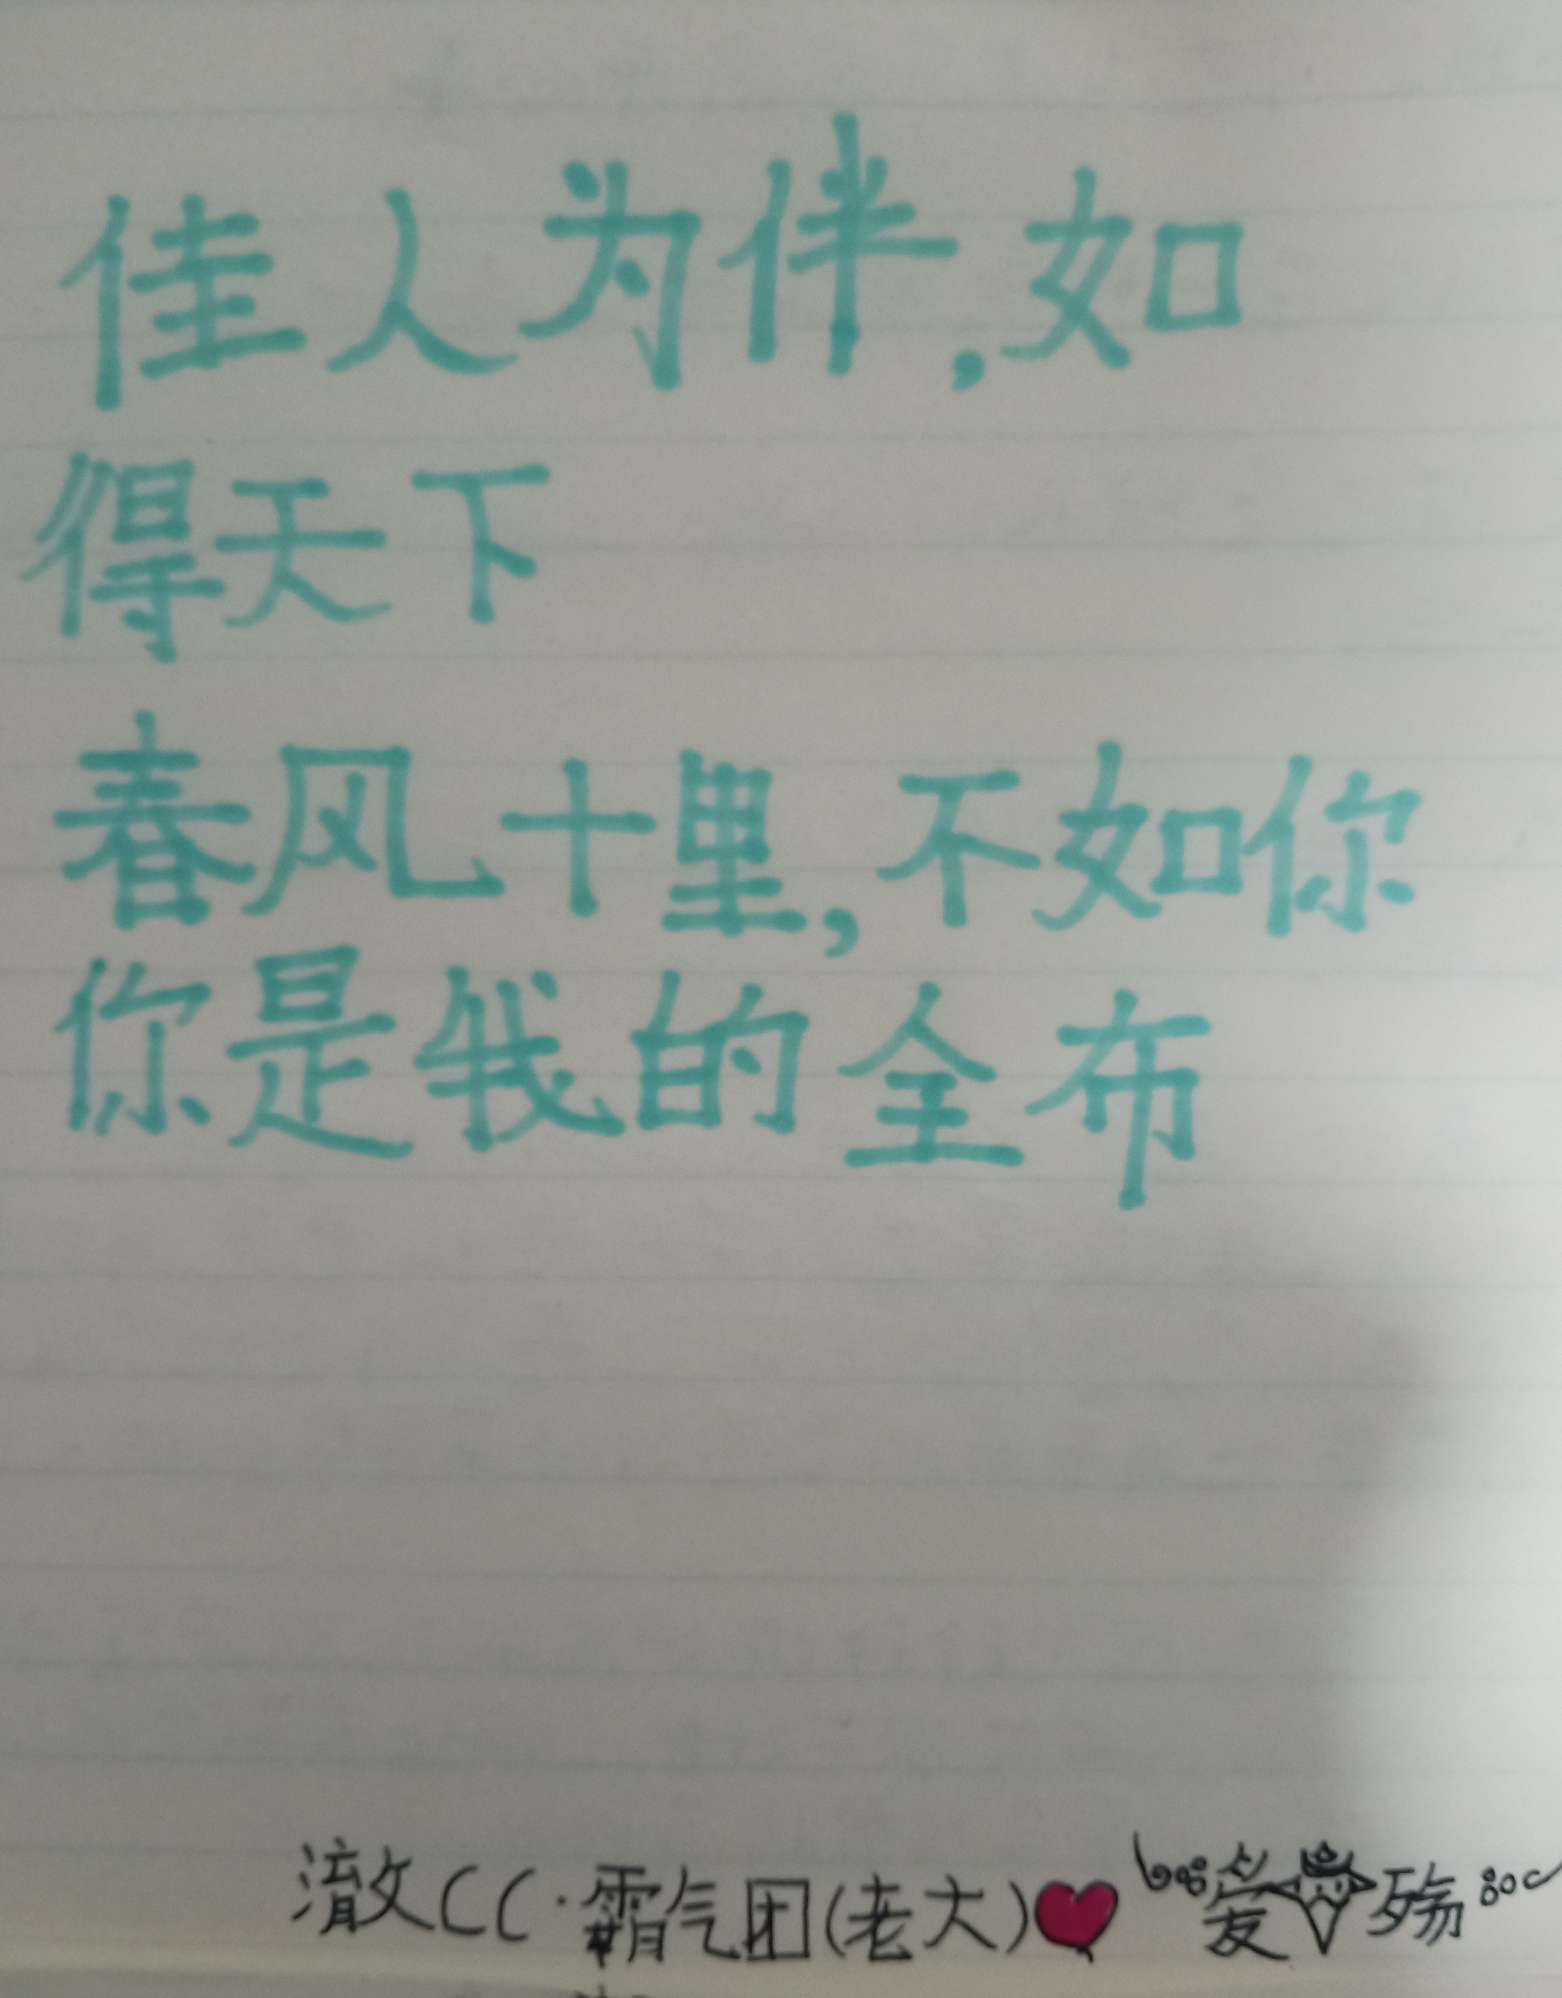 佳人为伴,如
得天下
春风十里,不如你
你是我的全布
澈CC·霸气团(老大)
爱 殇